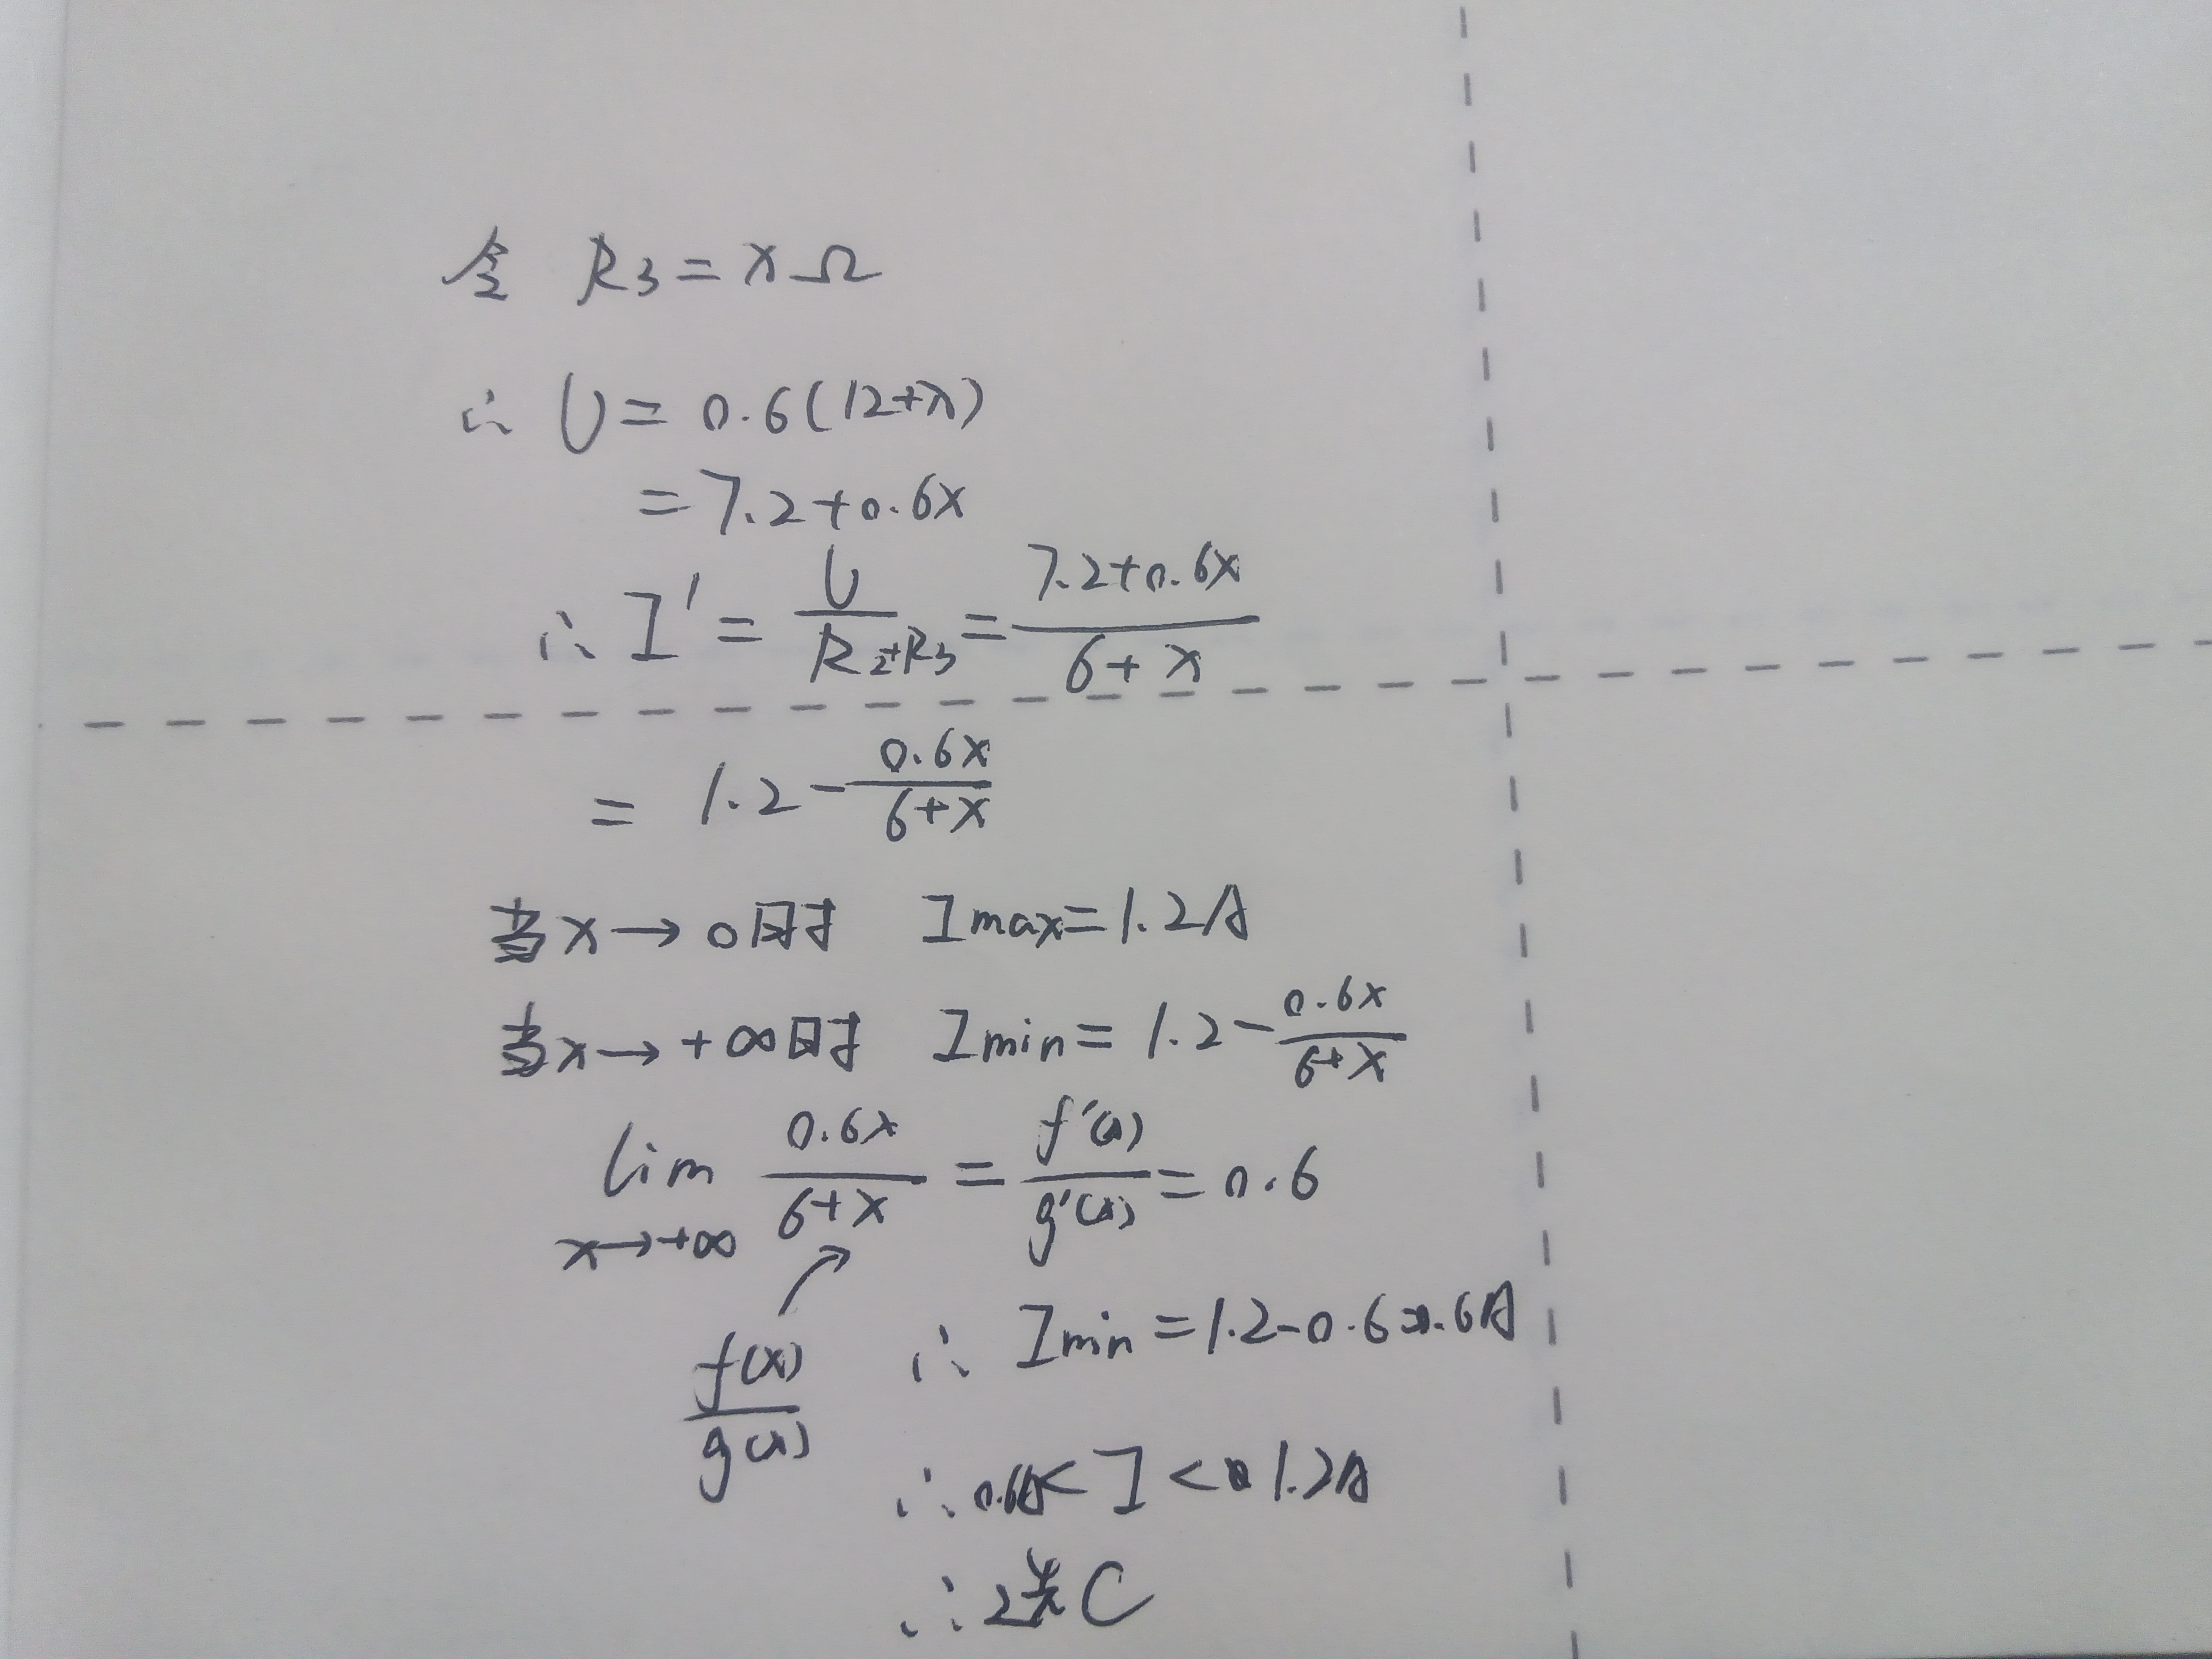 令 R₃=xΩ
∴ U=0.6(12+x)
=7.2+0.6x
∴ I'=U/(R₂+R₃)=(7.2+0.6x)/(6+x)
=1.2-0.6x/(6+x)
当x→0时 Imax=1.2A
当x→+∞时 Imin=1.2-0.6x/(6+x)
lim x→+∞ 0.6x/(6+x)=f'(x)/g'(x)=0.6
f(x)/g(x)
∴ Imin=1.2-0.6=0.6A
∴0.6A<I<1.2A
∴选C